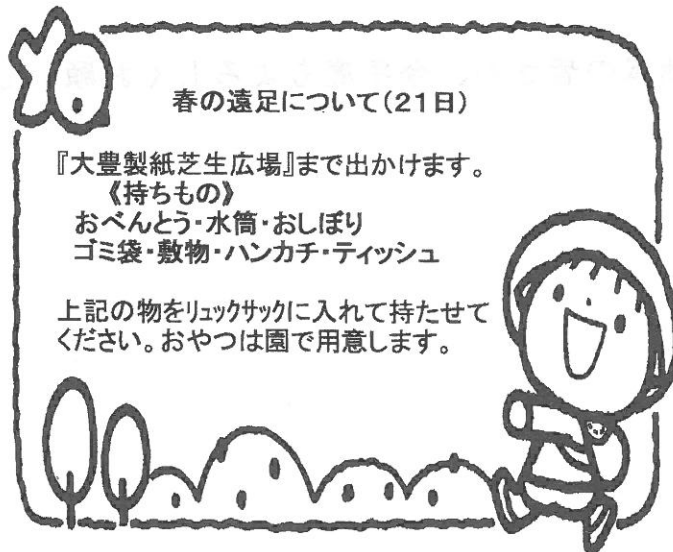 春の遠足について(21日)
『大豊製紙芝生広場』まで出かけます。
《持ちもの》
おべんとう・水筒・おしぼり
ゴミ袋・敷物・ハンカチ・ティッシュ
上記の物をリュックサックに入れて持たせて
ください。おやつは園で用意します。